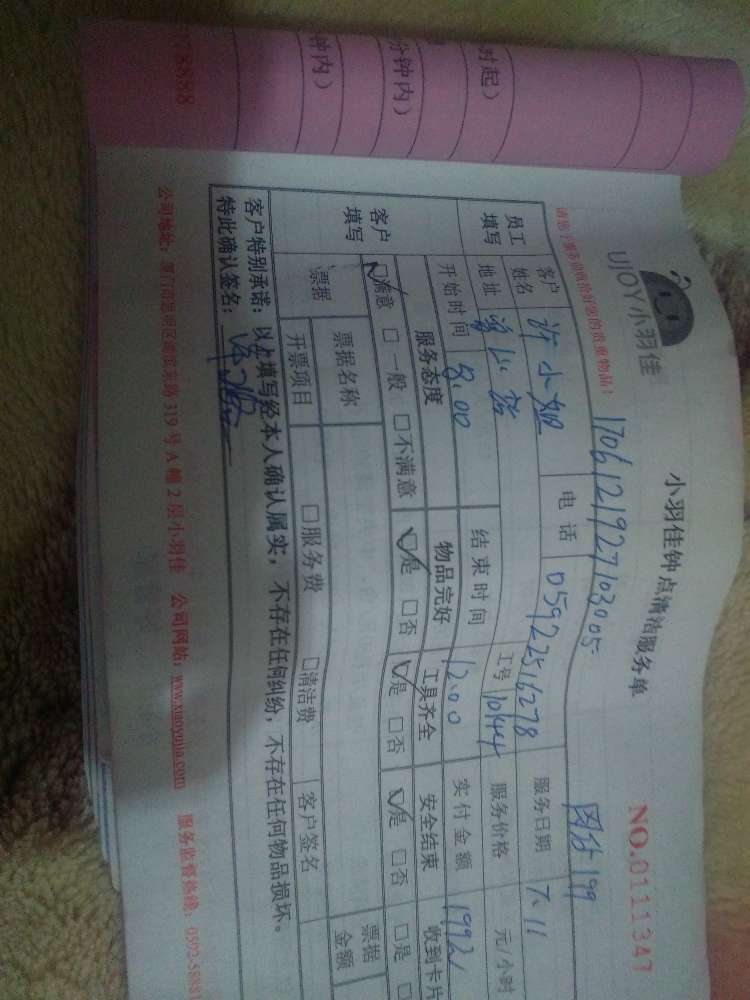 时起）
分钟内）
钟内）
78888
UJOY小羽佳
小羽佳钟点清洁服务单
NO.0111347
请您于服务前收拾好您的贵重物品！
1706121927103005
199
员工填写
客户姓名
许小姐
电话
05922516278
服务日期
7.11
地址
工号
10144
服务价格
元/小时
开始时间
8.00
结束时间
12.00
实付金额
199元
客户填写
服务态度
物品完好
工具齐全
安全结束
收到卡片
☑满意 □一般 □不满意
☑是 □否
☑是 □否
☑是 □否
□是
票据
票据名称
票据金额
开票项目
□服务费
□清洁费
客户签名
客户特别承诺：以上填写经本人确认属实，不存在任何纠纷，不存在任何物品损坏。
特此确认签名：
公司地址：厦门市思明区湖滨东路319号A幢2层小羽佳 公司网站：www.xiaoyujia.com 服务监督热线：0592-5881